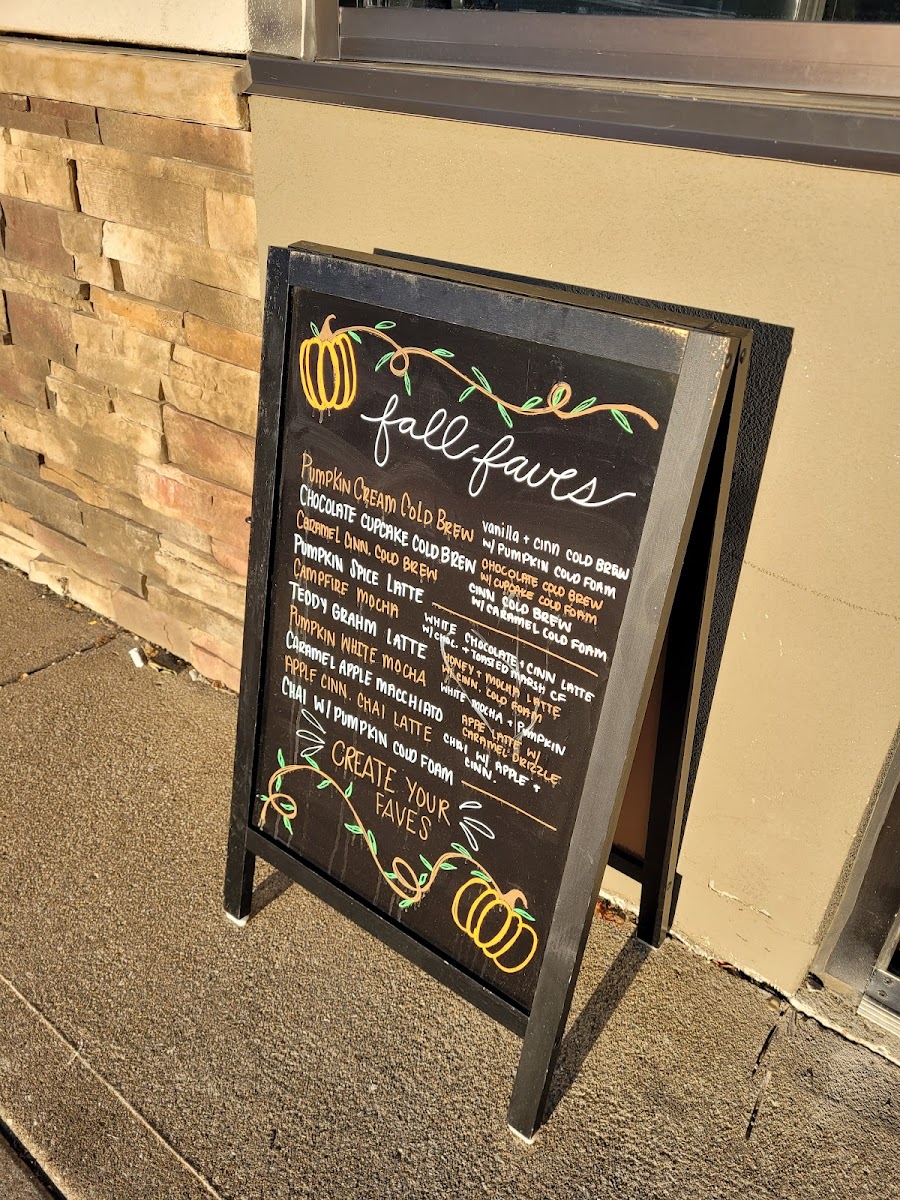 fall faves
PUMPKIN CREAM COLD BREW
vanilla + CINN COLD BREW
W/ PUMPKIN COLD FOAM
CHOCOLATE CUPCAKE COLD BREW
CHOCOLATE COLD BREW
W/ CUPCAKE COLD FOAM
CARAMEL CINN. COLD BREW
CINN COLD BREW
W/ CARAMEL COLD FOAM
PUMPKIN SPICE LATTE
CAMPFIRE MOCHA
WHITE CHOCOLATE + CINN LATTE
W/ CHOC. + TOASTED MARSH CF
TEDDY GRAHM LATTE
HONEY + MOCHA LATTE
W/ CINN. COLD FOAM
PUMPKIN WHITE MOCHA
WHITE MOCHA + PUMPKIN
CARAMEL APPLE MACCHIATO
APPE LATTE W/
CARAMEL DRIZZLE
APPLE CINN. CHAI LATTE
CHAI W/ APPLE +
CINN.
CHAI W/ PUMPKIN COLD FOAM
CREATE YOUR
FAVES